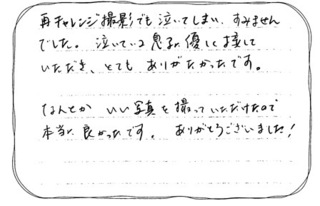 再チャレンジ撮影でも泣いてしまい、すみません
でした。泣いている息子に優しく接して
いただき、とても ありがたかったです。
なんとか いい写真を撮っていただけたので
本当に良かったです。 ありがとうございました!